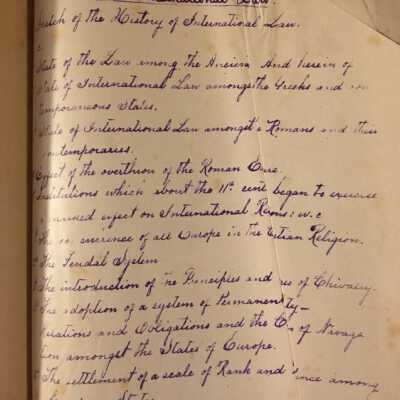 International Law.
Sketch of the History of International Law.
State of the Law among the Ancien And herein of
State of International Law amongst the Greeks and con
temporaneous States.
State of International Law amongst Romans and their
contemporaries.
Effect of the overthrow of the Roman
Institutions which about the 11th cent began to exercise
a marked effect on International
The of all Europe in the Religion.
The Feudal System
The introduction of the Principles and of Chivalry.
The adoption of a system of Permanen ty
and Obligations and the of Naviga
tion amongst the States of Europe.
The settlement of a scale of Rank and among